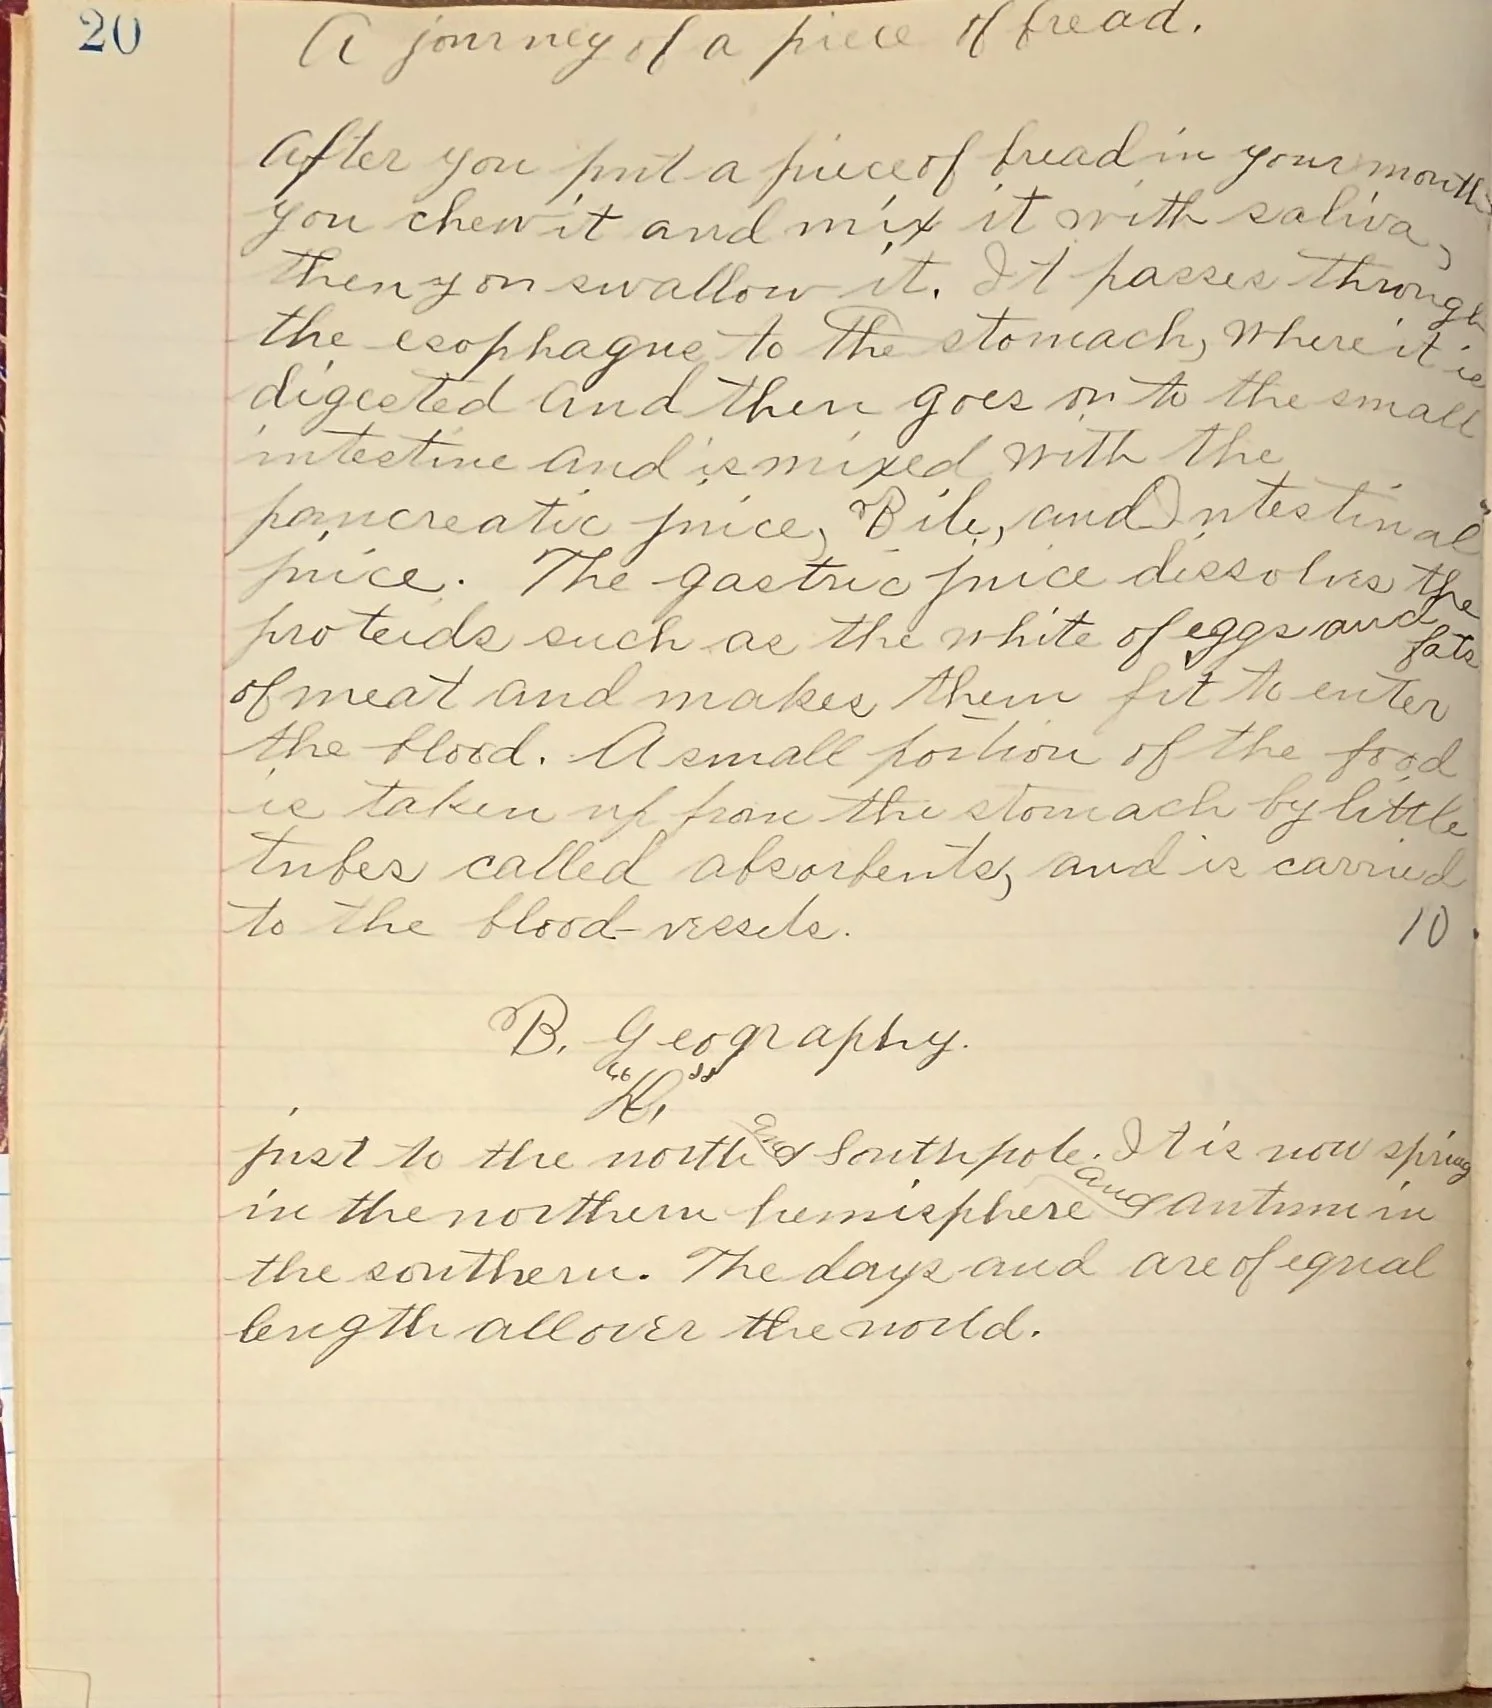 20
A journey of a piece of bread.
After you put a piece of bread in your mouth
you chew it and mix it with saliva,
then you swallow it. It passes through
the esophagus to the stomach, where it is
digested and then goes on to the small
intestine and is mixed with the
pancreatic juice, Bile, and Intestinal
juice. The gastric juice dissolves the
proteids such as the white of eggs and fats
of meat and makes them fit to enter
the blood. A small portion of the food
is taken up from the stomach by little
tubes called absorbents, and is carried
to the blood-vessels.
10.
B. Geography.
just to the north and South pole. It is now spring
in the northern hemisphere and autumn in
the southern. The days and are of equal
length all over the world.